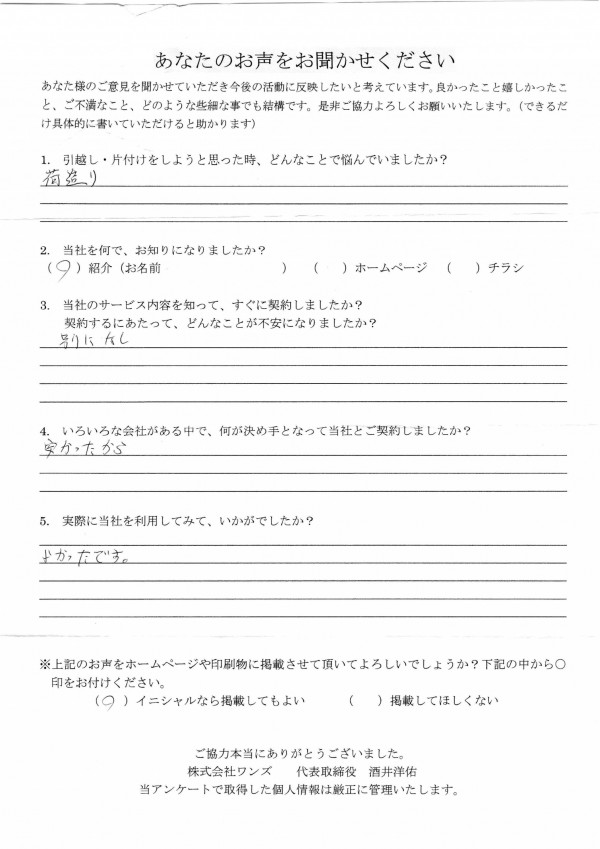 あなたのお声をお聞かせください
あなた様のご意見を聞かせていただき今後の活動に反映したいと考えています。良かったこと嬉しかったこ
と、ご不満なこと、どのような些細な事でも結構です。是非ご協力よろしくお願いいたします。（できるだ
け具体的に書いていただけると助かります）
1. 引越し・片付けをしようと思った時、どんなことで悩んでいましたか？
荷造り
2. 当社を何で、お知りになりましたか？
（○）紹介（お名前　　　　　　　　　）　（　）ホームページ　（　）チラシ
3. 当社のサービス内容を知って、すぐに契約しましたか？
契約するにあたって、どんなことが不安になりましたか？
別になし
4. いろいろな会社がある中で、何が決め手となって当社とご契約しましたか？
安かったから
5. 実際に当社を利用してみて、いかがでしたか？
よかったです。
※上記のお声をホームページや印刷物に掲載させて頂いてよろしいでしょうか？下記の中から○
印をお付けください。
（○）イニシャルなら掲載してもよい　　（　）掲載してほしくない
ご協力本当にありがとうございました。
株式会社ワンズ　　代表取締役　酒井洋佑
当アンケートで取得した個人情報は厳正に管理いたします。